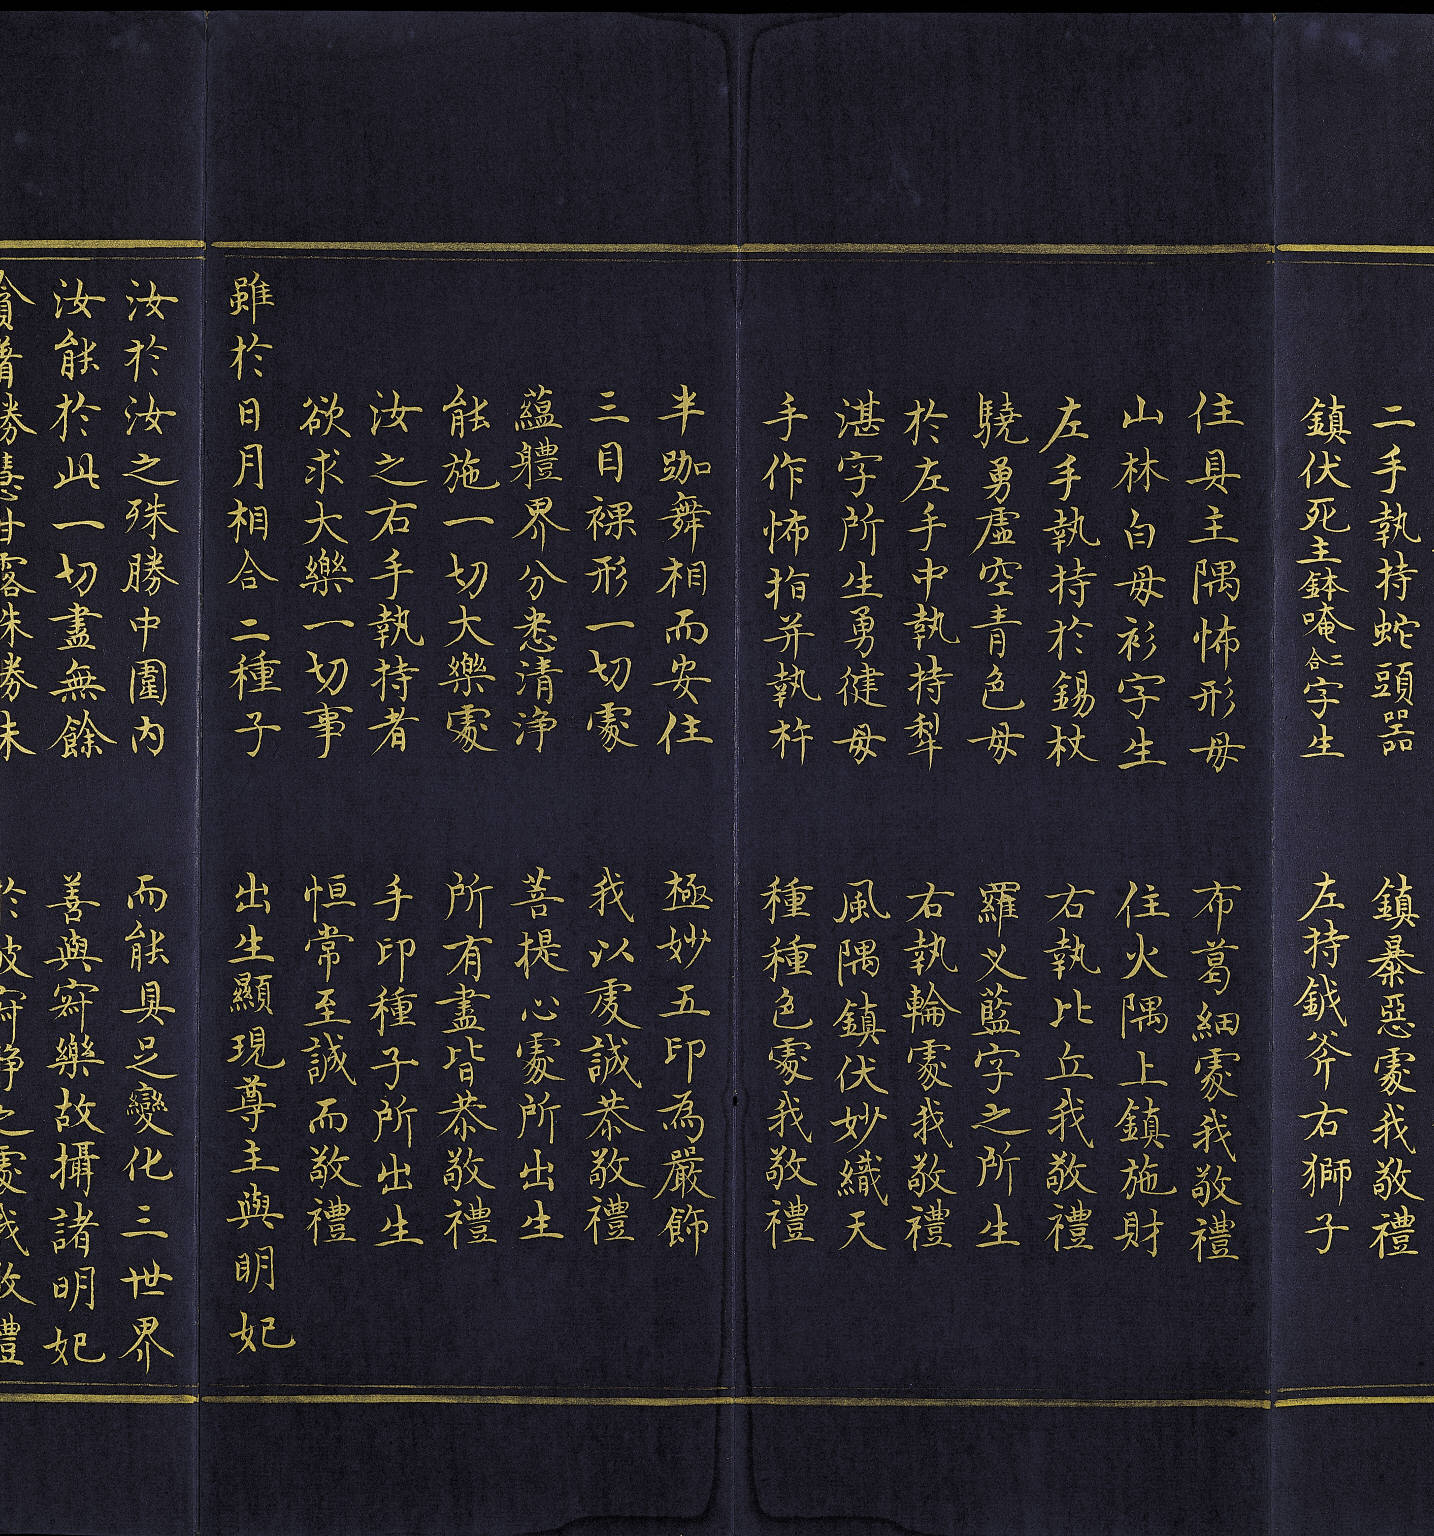 二手執持蛇頭器 鎮暴惡處我敬禮
鎮伏死主鉢唵二合字生 左持鉞斧右獅子
住具主隅怖形母 布葛細處我敬禮
山林白母衫字生 住火隅上鎮施財
左手執持於錫杖 右執比丘我敬禮
驍勇虛空青色母 羅义藍字之所生
於左手中執持犁 右執輪處我敬禮
湛字所生勇健母 風隅鎮伏妙織天
手作怖指并執杵 種種色處我敬禮
半跏舞相而安住 極妙五印為嚴飾
三目裸形一切處 我以虔誠恭敬禮
蘊體界分悉清淨 菩提心處所出生
能施一切大樂處 所有盡皆恭敬禮
汝之右手執持者 手印種子所出生
欲求大樂一切事 恒常至誠而敬禮
雖於日月相合二種子 出生顯現尊主與明妃
汝於汝之殊勝中圍內 而能具足變化三世界
汝能於此一切盡無餘 善與寂樂故攝諸明妃